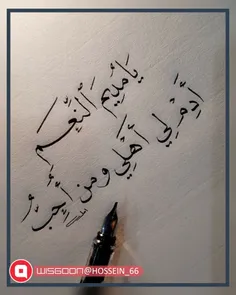 يَا مُدِيم ٱلنِّعَم
أَدِمْ لِي أَهْلِي وَمن أُحِبُّ
WISGOON@HOSSEIN_66